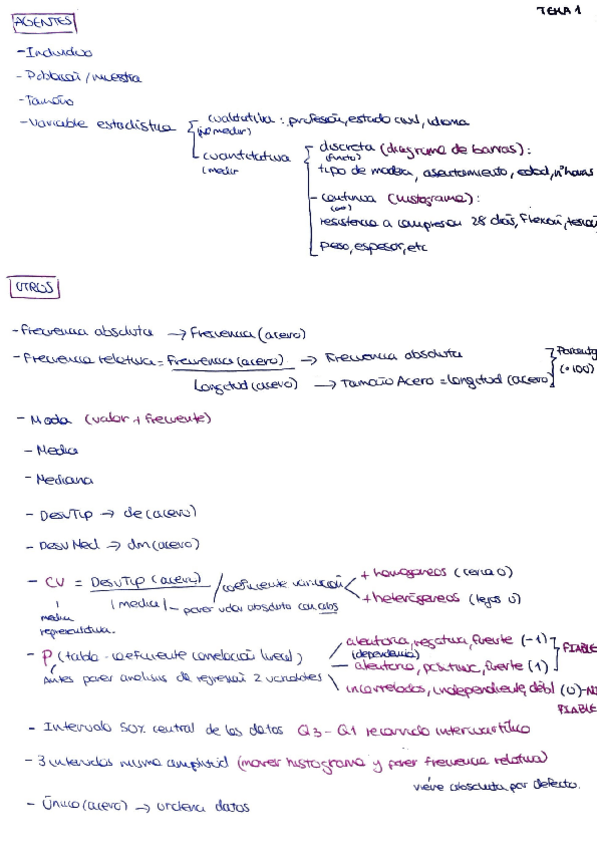 TEMA 1
AGENTES
- Individuo
- Población/muestra
- Tamaño
- Variable estadística
cualitativa : profesión, estado civil, idioma
(no medir)
cuantitativa
(medir
discreta (diagrama de barras) :
(finito)
tipo de madera, asentamiento, edad, nº horas
- continua (histograma) :
(∞)
resistencia a compresión 28 días, flexión,
peso, espesor, etc
OTROS
- Frecuencia absoluta → Frecuencia (acero)
- Frecuencia relativa = Frecuencia (acero) → Frecuencia absoluta
Longitud (acero) → Tamaño Acero = longitud (acero)
(·100)
- Moda (valor + frecuente)
- Media
- Mediana
- DesvTip → de (acero)
- Desv Med → dm (acero)
- CV = DesvTip (acero) / coeficiente variación
+ homogéneos (cerca 0)
|media| - poner valor absoluto con abs
+ heterogéneos (lejos 0)
media
representativa.
- P (tabla - coeficiente correlación lineal)
aleatoria, negativa, fuerte (-1)
(dependencia)
aleatoria, positiva, fuerte (1)
FIABLE
Antes poner análisis de regresión 2 variables
incorrelados, independiente, débil (0) - NO
FIABLE
- Intervalo 50% central de los datos Q3 - Q1 recorrido intercuartílico
- 3 intervalos misma amplitud (mover histograma y poner frecuencia relativa)
viene absoluta por defecto.
- Único (acero) → ordena datos